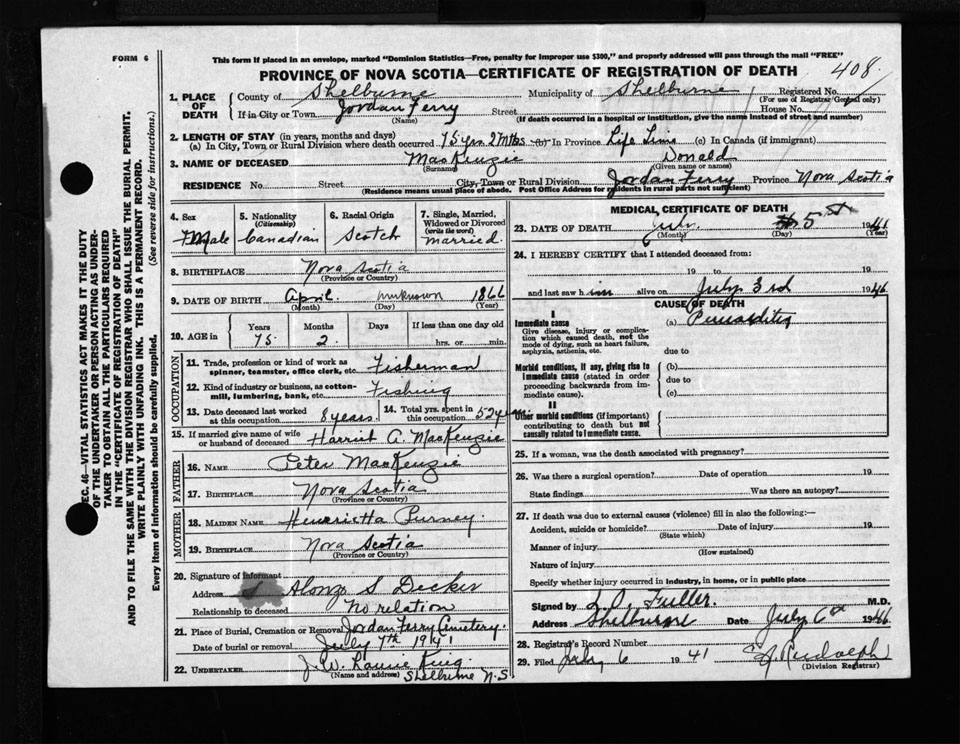 FORM 6
This form if placed in an envelope, marked "Dominion Statistics—Free, penalty for improper use $300," and properly addressed will pass through the mail "FREE"
PROVINCE OF NOVA SCOTIA—CERTIFICATE OF REGISTRATION OF DEATH
408.
1. PLACE OF DEATH
County of Shelburne Municipality of Shelburne Registered No.
(For use of Registrar General only)
If in City or Town Jordan Ferry Street House No.
(Name) (If death occurred in a hospital or institution, give the name instead of street and number)
2. LENGTH OF STAY (in years, months and days)
(a) In City, Town or Rural Division where death occurred 75 yrs. 2 Mths (b) In Province Life Time (c) In Canada (if immigrant)
3. NAME OF DECEASED MacKenzie Donald
(Surname) (Given name or names)
RESIDENCE No. Street City, Town or Rural Division Jordan Ferry Province Nova Scotia
(Residence means usual place of abode. Post Office Address for residents in rural parts not sufficient)
4. Sex 5. Nationality (Citizenship) 6. Racial Origin 7. Single, Married, Widowed or Divorced (write the word)
Male Canadian Scotch Married.
8. BIRTHPLACE Nova Scotia
(Province or Country)
9. DATE OF BIRTH April unknown 1866
(Month) (Day) (Year)
10. AGE in Years Months Days If less than one day old
75 2 hrs. or min.
OCCUPATION
11. Trade, profession or kind of work as spinner, teamster, office clerk, etc. Fisherman
12. Kind of industry or business, as cotton-mill, lumbering, bank, etc. Fishing
13. Date deceased last worked at this occupation 8 years. 14. Total yrs. spent in this occupation 52 years
15. If married give name of wife or husband of deceased Harriet A. MacKenzie
FATHER
16. NAME Peter MacKenzie
17. BIRTHPLACE Nova Scotia
(Province or Country)
MOTHER
18. MAIDEN NAME Henrietta Purney.
19. BIRTHPLACE Nova Scotia
(Province or Country)
20. Signature of informant Alonzo S. Decker
Address
Relationship to deceased No relation
21. Place of Burial, Cremation or Removal Jordan Ferry Cemetery.
Date of burial or removal July 7th 1941
22. UNDERTAKER J. W.
(Name and address) Shelburne N.S
MEDICAL CERTIFICATE OF DEATH
23. DATE OF DEATH July 5 1941
(Month) (Day) (Year)
24. I HEREBY CERTIFY that I attended deceased from:
19 to 19
and last saw h im alive on July 3rd 19
CAUSE OF DEATH
I
Immediate cause (a) Pericarditis
Give disease, injury or complication which caused death, not the mode of dying, such as heart failure, asphyxia, asthenia, etc.
due to
Morbid conditions, if any, giving rise to immediate cause (stated in order proceeding backwards from immediate cause).
(b)
due to
(c)
II
Other morbid conditions (if important) contributing to death but not causally related to immediate cause.
25. If a woman, was the death associated with pregnancy?
26. Was there a surgical operation? Date of operation 19
State findings Was there an autopsy?
27. If death was due to external causes (violence) fill in also the following:—
Accident, suicide or homicide? Date of injury 19
(State which)
Manner of injury
(How sustained)
Nature of injury
Specify whether injury occurred in industry, in home, or in public place
Signed by Fuller. M.D.
Address Shelburne Date July 6th 19
28. Registrar's Record Number
29. Filed July 6 1941 Rudolph
(Division Registrar)
SEC. 46—VITAL STATISTICS ACT MAKES IT THE DUTY
OF THE UNDERTAKER OR PERSON ACTING AS UNDER-
TAKER TO OBTAIN ALL THE PARTICULARS REQUIRED
IN THE "CERTIFICATE OF REGISTRATION OF DEATH"
AND TO FILE THE SAME WITH THE DIVISION REGISTRAR WHO SHALL ISSUE THE BURIAL PERMIT.
WRITE PLAINLY WITH UNFADING INK. THIS IS A PERMANENT RECORD.
Every item of information should be carefully supplied. (See reverse side for instructions.)